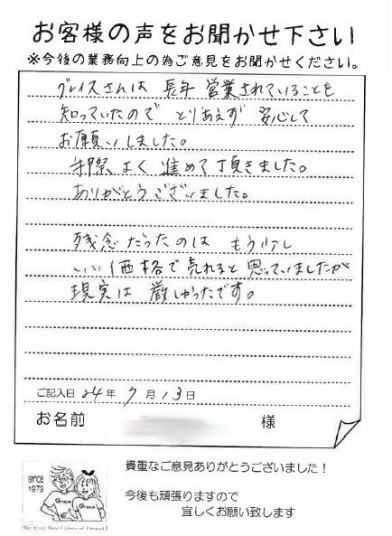 お客様の声をお聞かせ下さい
※今後の業務向上の為ご意見をお聞かせください。
グレイスさんは 長年 営業されていることを
知っていたので とりあえず 安心して
お願いしました。
手際よく 進めて頂きました。
ありがとうございました。
残念だったのは もう少し
いい価格で売れると思っていましたが
現実は 厳しかったです。
ご記入日 24年 7月13日
お名前 様
貴重なご意見ありがとうございました！
今後も頑張りますので
宜しくお願い致します
SINCE
1979
Grace
Grace